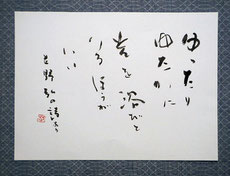 ゆったり
ゆたかに
光を浴びて
いるほうが
いい
吉野弘の詩より